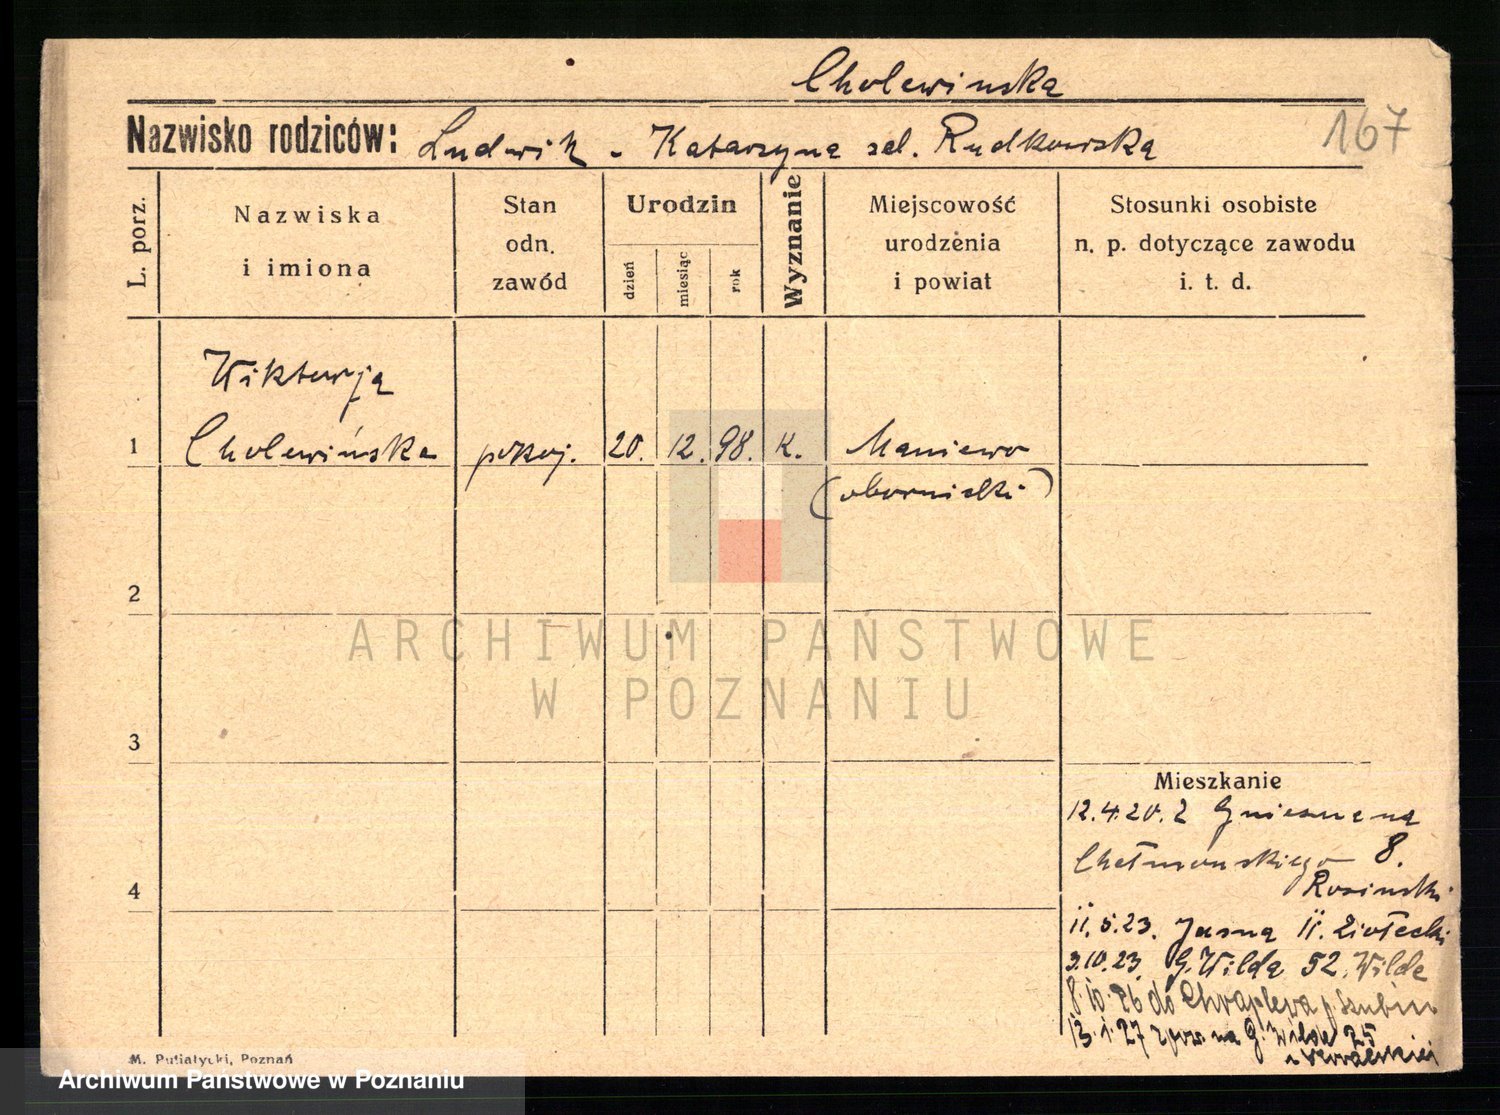 Cholewinska
Nazwisko rodziców: Ludwik - Katarzyna zd. Rudkowska
167
L. porz.
Nazwiska
i imiona
Stan
odn.
zawód
Urodzin
dzień
miesiąc
rok
Wyznanie
Miejscowość
urodzenia
i powiat
Stosunki osobiste
n. p. dotyczące zawodu
i. t. d.
Wiktorja
1 Cholewińska pokoj. 20. 12. 98. K. Maniewo
(obornicki)
2
ARCHIWUM PAŃSTWOWE
W POZNANIU
3
Mieszkanie
12.4.20. z Gniezna na
Chełmońskiego 8.
4
Rosinski
11.5.23. Jasna 11. Ziołecki
3.10.23. G. Wilda 52. Wilde
8.10.26 do Chraplewa p. Szubin
13.1.27 zpow. na G. Wilda 25
M. Putiatycki, Poznań
Archiwum Państwowe w Poznaniu